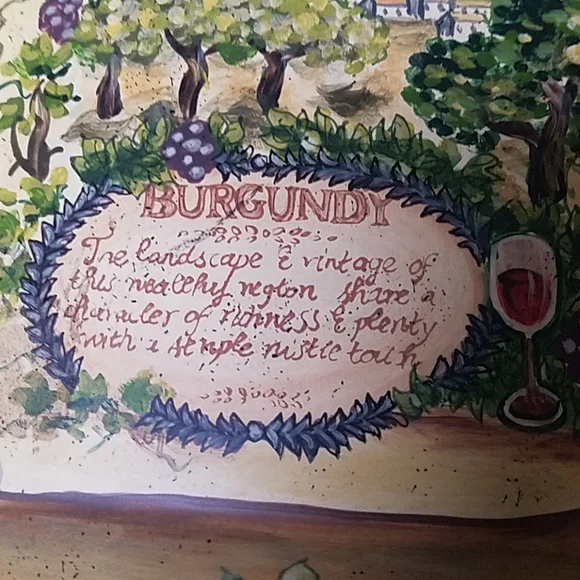 BURGUNDY
The landscape & vintage of
this wealthy region share a
character of richness & plenty
with a simple rustic touch